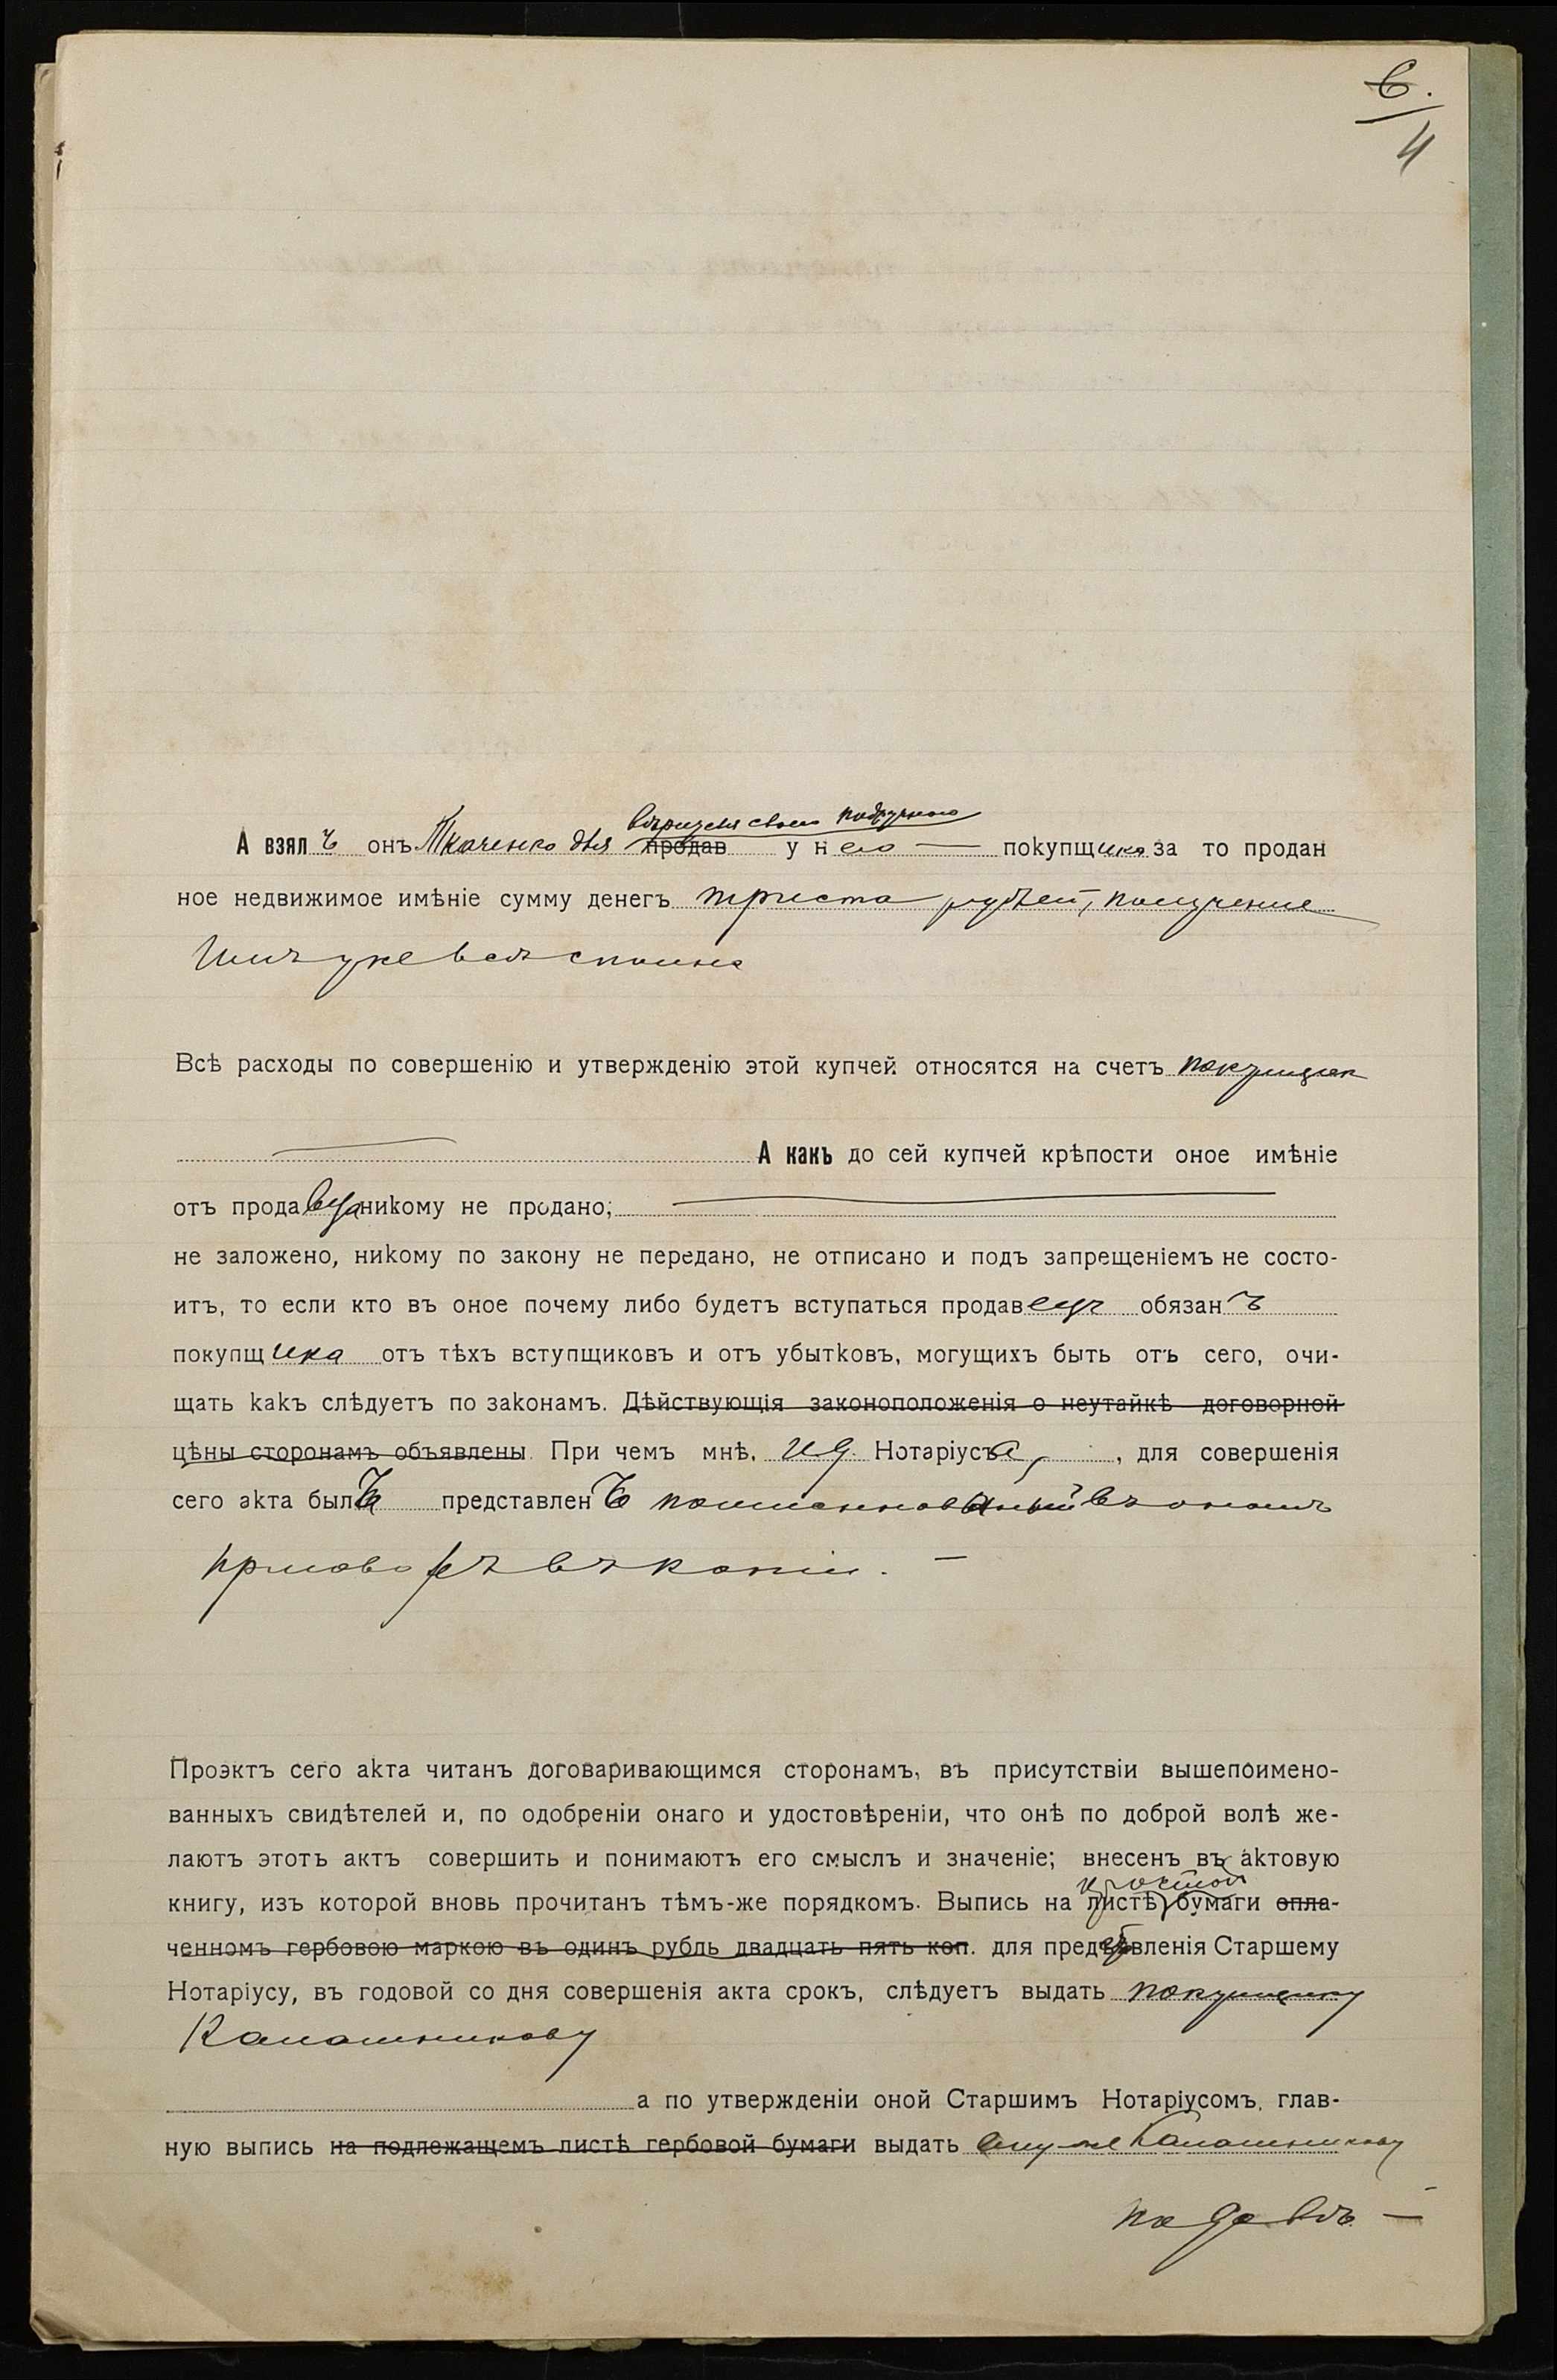 6.
4
вѣрителя своего
А взялъ онъ Ткаченко для продав у него — покупщика за то продан
ное недвижимое имѣніе сумму денегъ триста рублей,
имъ уже всѣ сполна
Всѣ расходы по совершенію и утвержденію этой купчей относятся на счетъ
А какъ до сей купчей крѣпости оное имѣніе
отъ продавца никому не продано;
не заложено, никому по закону не передано, не отписано и подъ запрещеніемъ не состо-
итъ, то если кто въ оное почему либо будетъ вступаться продавецъ обязанъ
покупщика отъ тѣхъ вступщиковъ и отъ убытковъ, могущихъ быть отъ сего, очи-
щать какъ слѣдуетъ по законамъ. Дѣйствующія законоположенія о неутайкѣ договорной
цѣны сторонамъ объявлены. При чемъ мнѣ, И.д. Нотаріуса, для совершенія
сего акта былъ представленъ поименнованный въ ономъ
приговоръ въ копіи. —
Проэктъ сего акта читанъ договаривающимся сторонамъ, въ присутствіи вышепоимено-
ванныхъ свидѣтелей и, по одобреніи онаго и удостовѣреніи, что онѣ по доброй волѣ же-
лаютъ этотъ актъ совершить и понимаютъ его смыслъ и значеніе; внесенъ въ актовую
простой
книгу, изъ которой вновь прочитанъ тѣмъ-же порядкомъ. Выпись на листѣ бумаги опла-
ченномъ гербовою маркою въ одинъ рубль двадцать пять коп. для представленія Старшему
Нотаріусу, въ годовой со дня совершенія акта срокъ, слѣдуетъ выдать покупщику
Калашникову
а по утвержденіи оной Старшимъ Нотаріусомъ, глав-
ную выпись на подлежащемъ листѣ гербовой бумаги выдать ему-же Калашникову